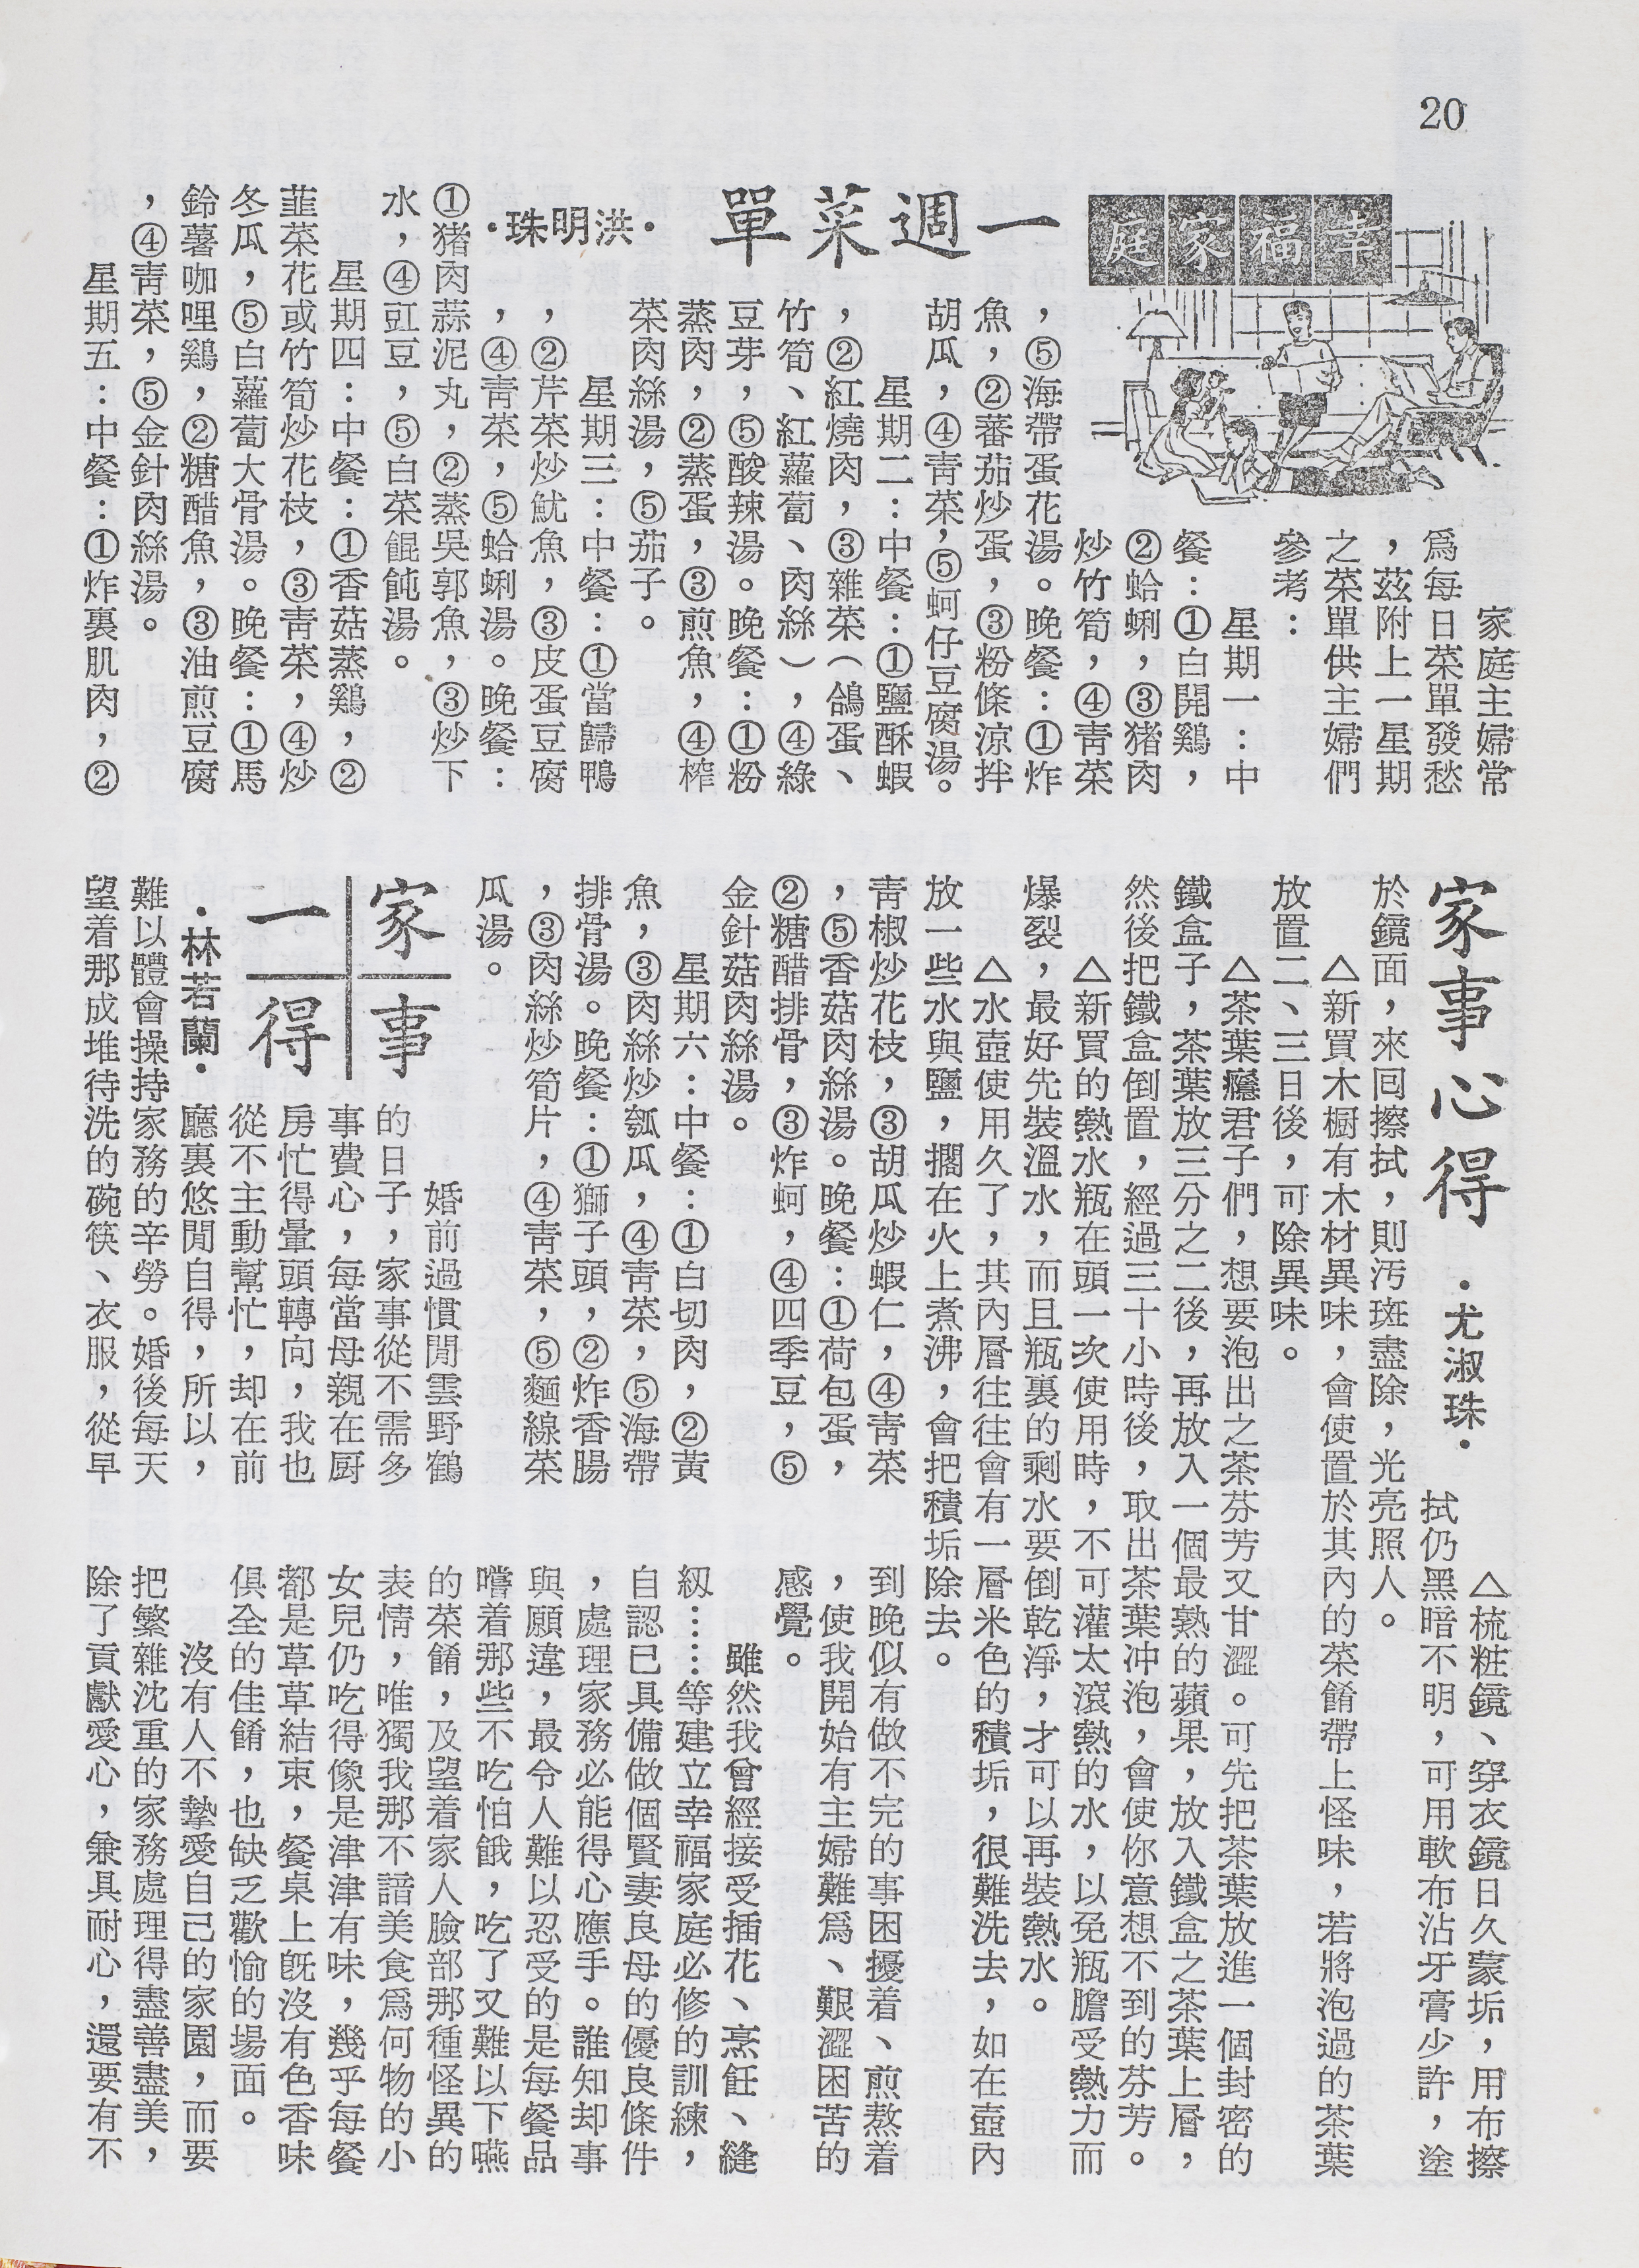 20
幸福家庭
一週菜單
·洪明珠·
家庭主婦常
爲每日菜單發愁
，茲附上一星期
之菜單供主婦們
參考：
星期一：中
餐：①白開鷄，
②蛤蜊，③猪肉
炒竹筍，④靑菜
，⑤海帶蛋花湯。晚餐：①炸
魚，②蕃茄炒蛋，③粉條涼拌
胡瓜，④靑菜，⑤蚵仔豆腐湯。
星期二：中餐：①鹽酥蝦
，②紅燒肉，③雜菜（鴿蛋、
竹筍、紅蘿蔔、肉絲），④綠
豆芽，⑤酸辣湯。晚餐：①粉
蒸肉，②蒸蛋，③煎魚，④榨
菜肉絲湯，⑤茄子。
星期三：中餐：①當歸鴨
，②芹菜炒魷魚，③皮蛋豆腐
，④靑菜，⑤蛤蜊湯。晚餐：
①猪肉蒜泥丸，②蒸吳郭魚，③炒下
水，④豇豆，⑤白菜餛飩湯。
星期四：中餐：①香菇蒸鷄，②
韮菜花或竹筍炒花枝，③靑菜，④炒
冬瓜，⑤白蘿蔔大骨湯。晚餐：①馬
鈴薯咖哩鷄，②糖醋魚，③油煎豆腐
，④靑菜，⑤金針肉絲湯。
星期五：中餐：①炸裏肌肉，②
靑椒炒花枝，③胡瓜炒蝦仁，④靑菜
，⑤香菇肉絲湯。晚餐：①荷包蛋，
②糖醋排骨，③炸蚵，④四季豆，⑤
金針菇肉絲湯。
星期六：中餐：①白切肉，②黃
魚，③肉絲炒瓠瓜，④靑菜，⑤海帶
排骨湯。晚餐：①獅子頭，②炸香腸
，③肉絲炒筍片，④靑菜，⑤麵線菜
瓜湯。
家事心得
·尤淑珠·
△梳粧鏡、穿衣鏡日久蒙垢，用布擦
拭仍黑暗不明，可用軟布沾牙膏少許，塗
於鏡面，來回擦拭，則汚斑盡除，光亮照人。
△新買木櫥有木材異味，會使置於其內的菜餚帶上怪味，若將泡過的茶葉
放置二、三日後，可除異味。
△茶葉癮君子們，想要泡出之茶芬芳又甘澀。可先把茶葉放進一個封密的
鐵盒子，茶葉放三分之二後，再放入一個最熟的蘋果，放入鐵盒之茶葉上層，
然後把鐵盒倒置，經過三十小時後，取出茶葉冲泡，會使你意想不到的芬芳。
△新買的熱水瓶在頭一次使用時，不可灌太滾熱的水，以免瓶膽受熱力而
爆裂，最好先裝溫水，而且瓶裏的剩水要倒乾淨，才可以再裝熱水。
△水壺使用久了，其內層往往會有一層米色的積垢，很難洗去，如在壺內
放一些水與鹽，擱在火上煮沸，會把積垢除去。
家事一得
·林若蘭·
婚前過慣閒雲野鶴
的日子，家事從不需多
事費心，每當母親在廚
房忙得暈頭轉向，我也
從不主動幫忙，却在前
廳裏悠閒自得，所以，
難以體會操持家務的辛勞。婚後每天
望着那成堆待洗的碗筷、衣服，從早
到晚似有做不完的事困擾着、煎熬着
，使我開始有主婦難爲、艱澀困苦的
感覺。
雖然我曾經接受插花、烹飪、縫
紉……等建立幸福家庭必修的訓練，
自認已具備做個賢妻良母的優良條件
，處理家務必能得心應手。誰知却事
與願違，最令人難以忍受的是每餐品
嚐着那些不吃怕餓，吃了又難以下嚥
的菜餚，及望着家人臉部那種怪異的
表情，唯獨我那不諳美食爲何物的小
女兒仍吃得像是津津有味，幾乎每餐
都是草草結束，餐桌上旣沒有色香味
俱全的佳餚，也缺乏歡愉的場面。
沒有人不摯愛自己的家園，而要
把繁雜沈重的家務處理得盡善盡美，
除了貢獻愛心，兼具耐心，還要有不